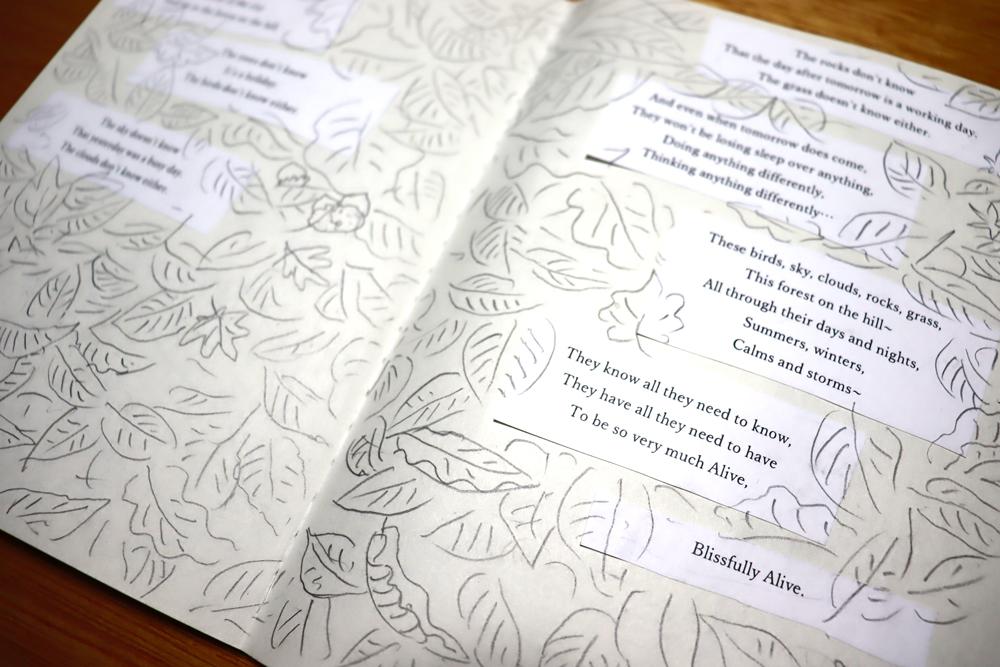 The trees don't know
It is a holiday.
The birds don't know either.
The sky doesn't know
That yesterday was a busy day.
The clouds don't know either.
The rocks don't know
That the day after tomorrow is a working day.
The grass doesn't know either.
And even when tomorrow does come,
They won't be losing sleep over anything,
Doing anything differently,
Thinking anything differently...
These birds, sky, clouds, rocks, grass,
This forest on the hill~
All through their days and nights,
Summers, winters,
Calms and storms~
They know all they need to know,
They have all they need to have
To be so very much Alive,
Blissfully Alive.